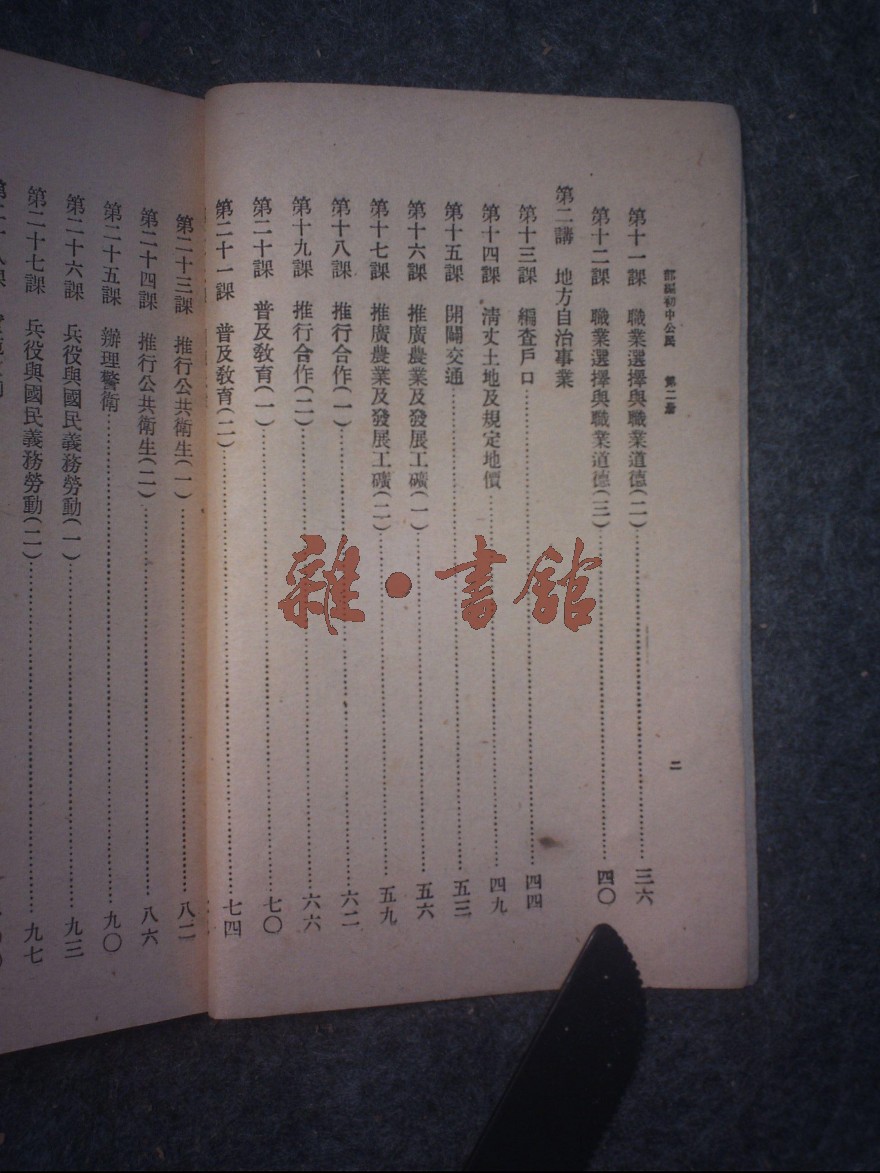 部編初中公民 第二册
二
第十一課 職業選擇與職業道德(二)……三六
第十二課 職業選擇與職業道德(三)……四〇
第二講 地方自治事業
第十三課 編査戶口……四四
第十四課 淸丈土地及規定地價……四九
第十五課 開闢交通……五三
第十六課 推廣農業及發展工礦(一)……五六
第十七課 推廣農業及發展工礦(二)……五九
第十八課 推行合作(一)……六二
第十九課 推行合作(二)……六六
第二十課 普及敎育(一)……七〇
第二十一課 普及敎育(二)……七四
第二十三課 推行公共衞生(一)……八二
第二十四課 推行公共衞生(二)……八六
第二十五課 辦理警衞……九〇
第二十六課 兵役與國民義務勞動(一)……九三
第二十七課 兵役與國民義務勞動(二)……九七
第二十八課
雜·書館